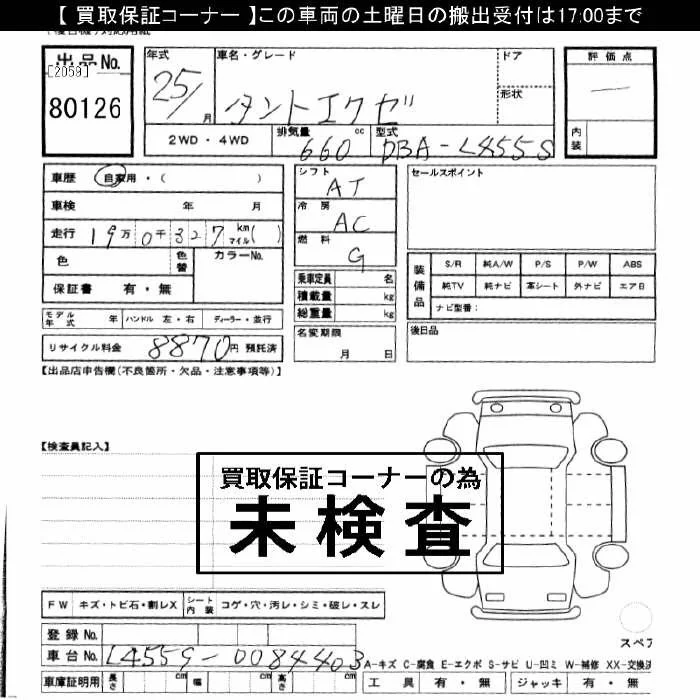 【 買取保証コーナー 】この車両の土曜日の搬出受付は17:00まで
出品No.
[2059]
80126
年式
25/
月
車名・グレード
タントエグゼ
ドア
形状
評価点
内装
2WD ・ 4WD
排気量
660
cc
型式
DBA-L455S
車歴
自家用・( )
車検 年 月
走行 19万0千327 km マイル( )
色
色替
カラーNo.
保証書 有・無
モデル年式 年
ハンドル 左・右
ディーラー・並行
リサイクル料金 8870円 預託済
シフト
AT
冷房
AC
燃料
G
乗車定員 名
積載量 kg
総重量 kg
名変期限
月 日
セールスポイント
装備品
S/R 純A/W P/S P/W ABS
純TV 純ナビ 革シート 外ナビ エアB
ナビ型番:
後日品
【出品店申告欄(不良箇所・欠品・注意事項等)】
【検査員記入】
買取保証コーナーの為
未検査
FW キズ・トビ石・割レX
シート内装 コゲ・穴・汚レ・シミ・破レ・スレ
登録No.
車台No. L455S-0084403
スペア
A-キズ C-腐食 E-エクボ S-サビ U-凹ミ W-補修 XX-交換済
車庫証明用 長さ cm 幅 cm 高さ cm
工具 有・無 ジャッキ 有・無